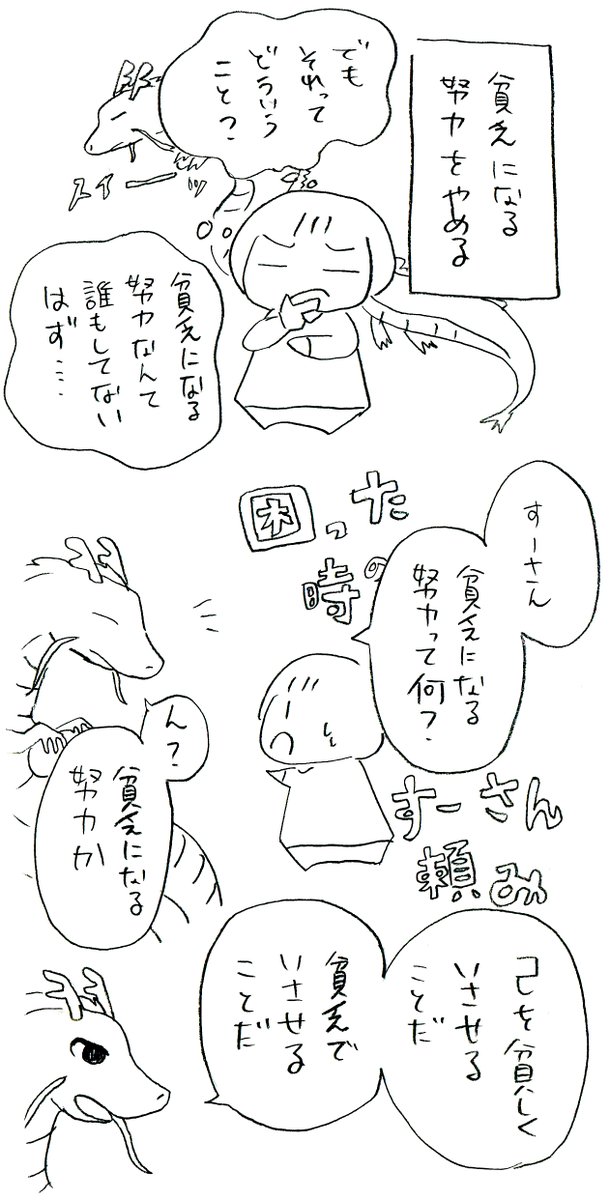 貧乏になる
努力をやめる
でも
それって
どういう
こと？
スイーッ
貧乏になる
努力なんて
誰もしてない
はず…
すーさん
貧乏になる
努力って何？
困った
時の
すーさん
頼み
ん？
貧乏になる
努力か
己を貧しく
いさせる
ことだ
貧乏で
いさせる
ことだ